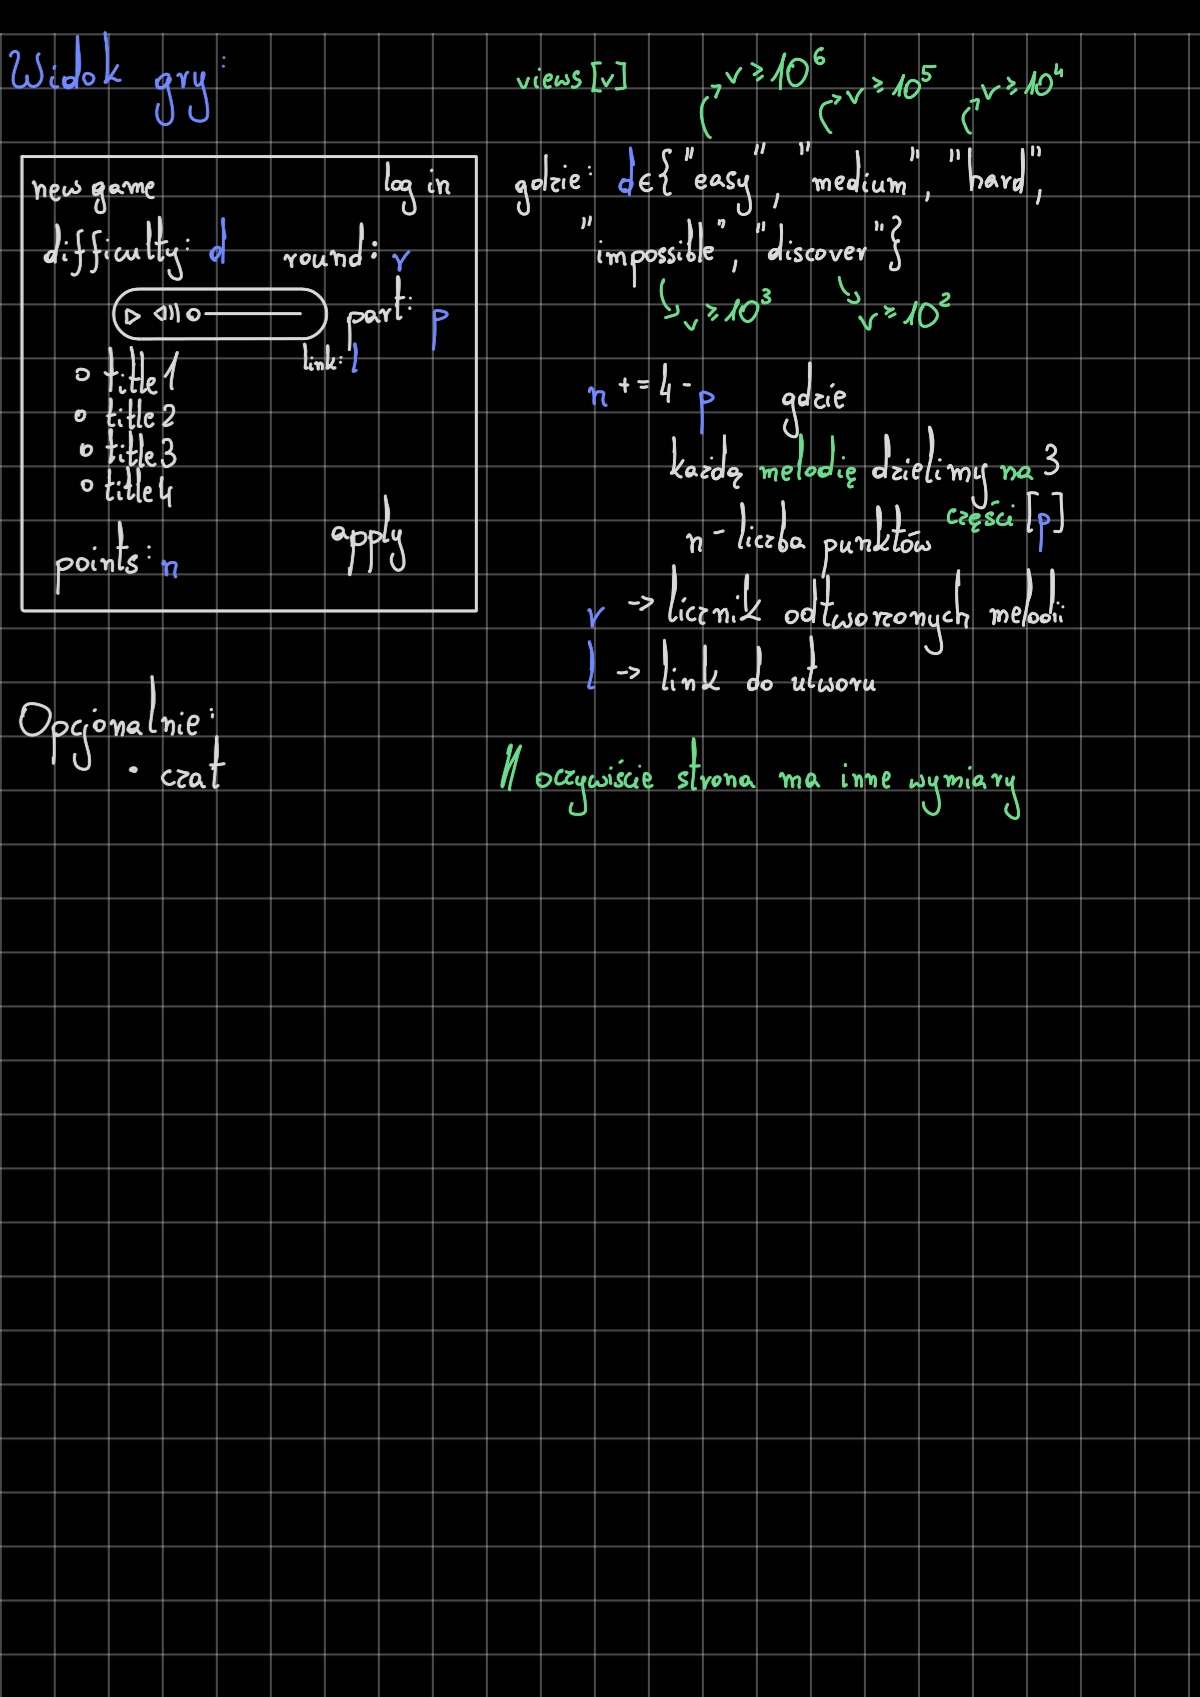 Widok gry:
new game log in
difficulty: d round: r
part: p
link: l
title 1
title 2
title 3
title 4
apply
points: n
Opcjonalnie:
• czat
views [v] v ≥ 10^6 v ≥ 10^5 v ≥ 10^4
gdzie: d ∈ { "easy", "medium", "hard",
"impossible", "discover" }
v ≥ 10^3 v ≥ 10^2
n += 4 - p gdzie
każdą melodię dzielimy na 3
części [p]
n - liczba punktów
r -> licznik odtworzonych melodii
l -> link do utworu
// oczywiście strona ma inne wymiary